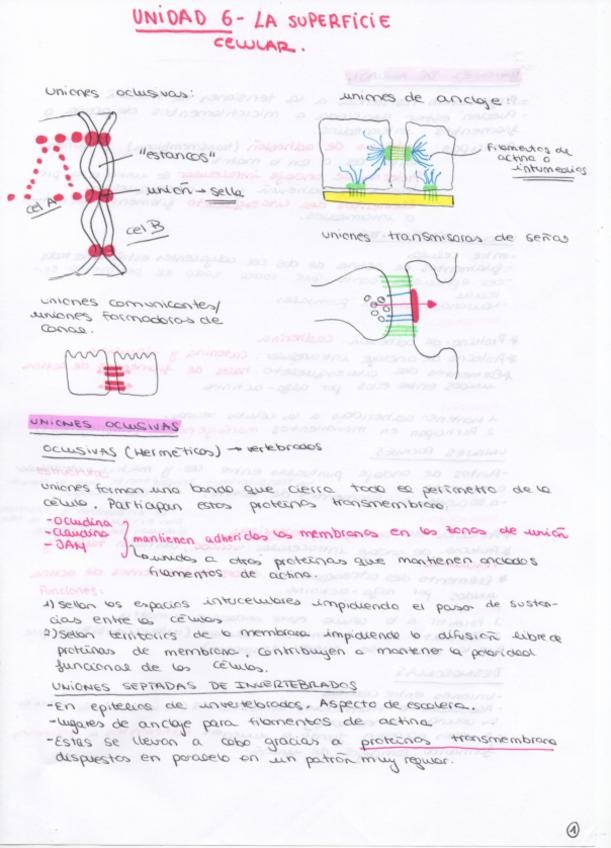 UNIDAD 6 - LA SUPERFICIE
CELULAR.
uniones oclusivas:
"estancos"
unión → sella
cel A
cel B
uniones de anclaje:
Filamentos de
actina o
intermedios
uniones transmisoras de señas
uniones comunicantes/
uniones formadoras de
canal.
UNIONES OCLUSIVAS
OCLUSIVAS (Herméticos) → vertebrados
Estructura:
uniones forman una banda que cierra todo el perímetro de la
célula. Participan estas proteínas transmembrana:
-Ocludina
-Claudina
-JAM
mantienen adheridas las membranas en las zonas de unión
↳ unidas a otras proteínas que mantienen anclados
filamentos de actina.
Funciones:
1) Sellan los espacios intercelulares impidiendo el paso de sustan-
cias entre las células
2) Sellan territorios de la membrana impidiendo la difusión libre de
proteínas de membrana. Contribuyen a mantener la polaridad
funcional de las células.
UNIONES SEPTADAS DE INVERTEBRADOS
-En epitelios de invertebrados. Aspecto de escalera.
-Lugares de anclaje para filamentos de actina.
-Estas se llevan a cabo gracias a proteínas transmembrana
dispuestas en paralelo en un patrón muy regular.
1